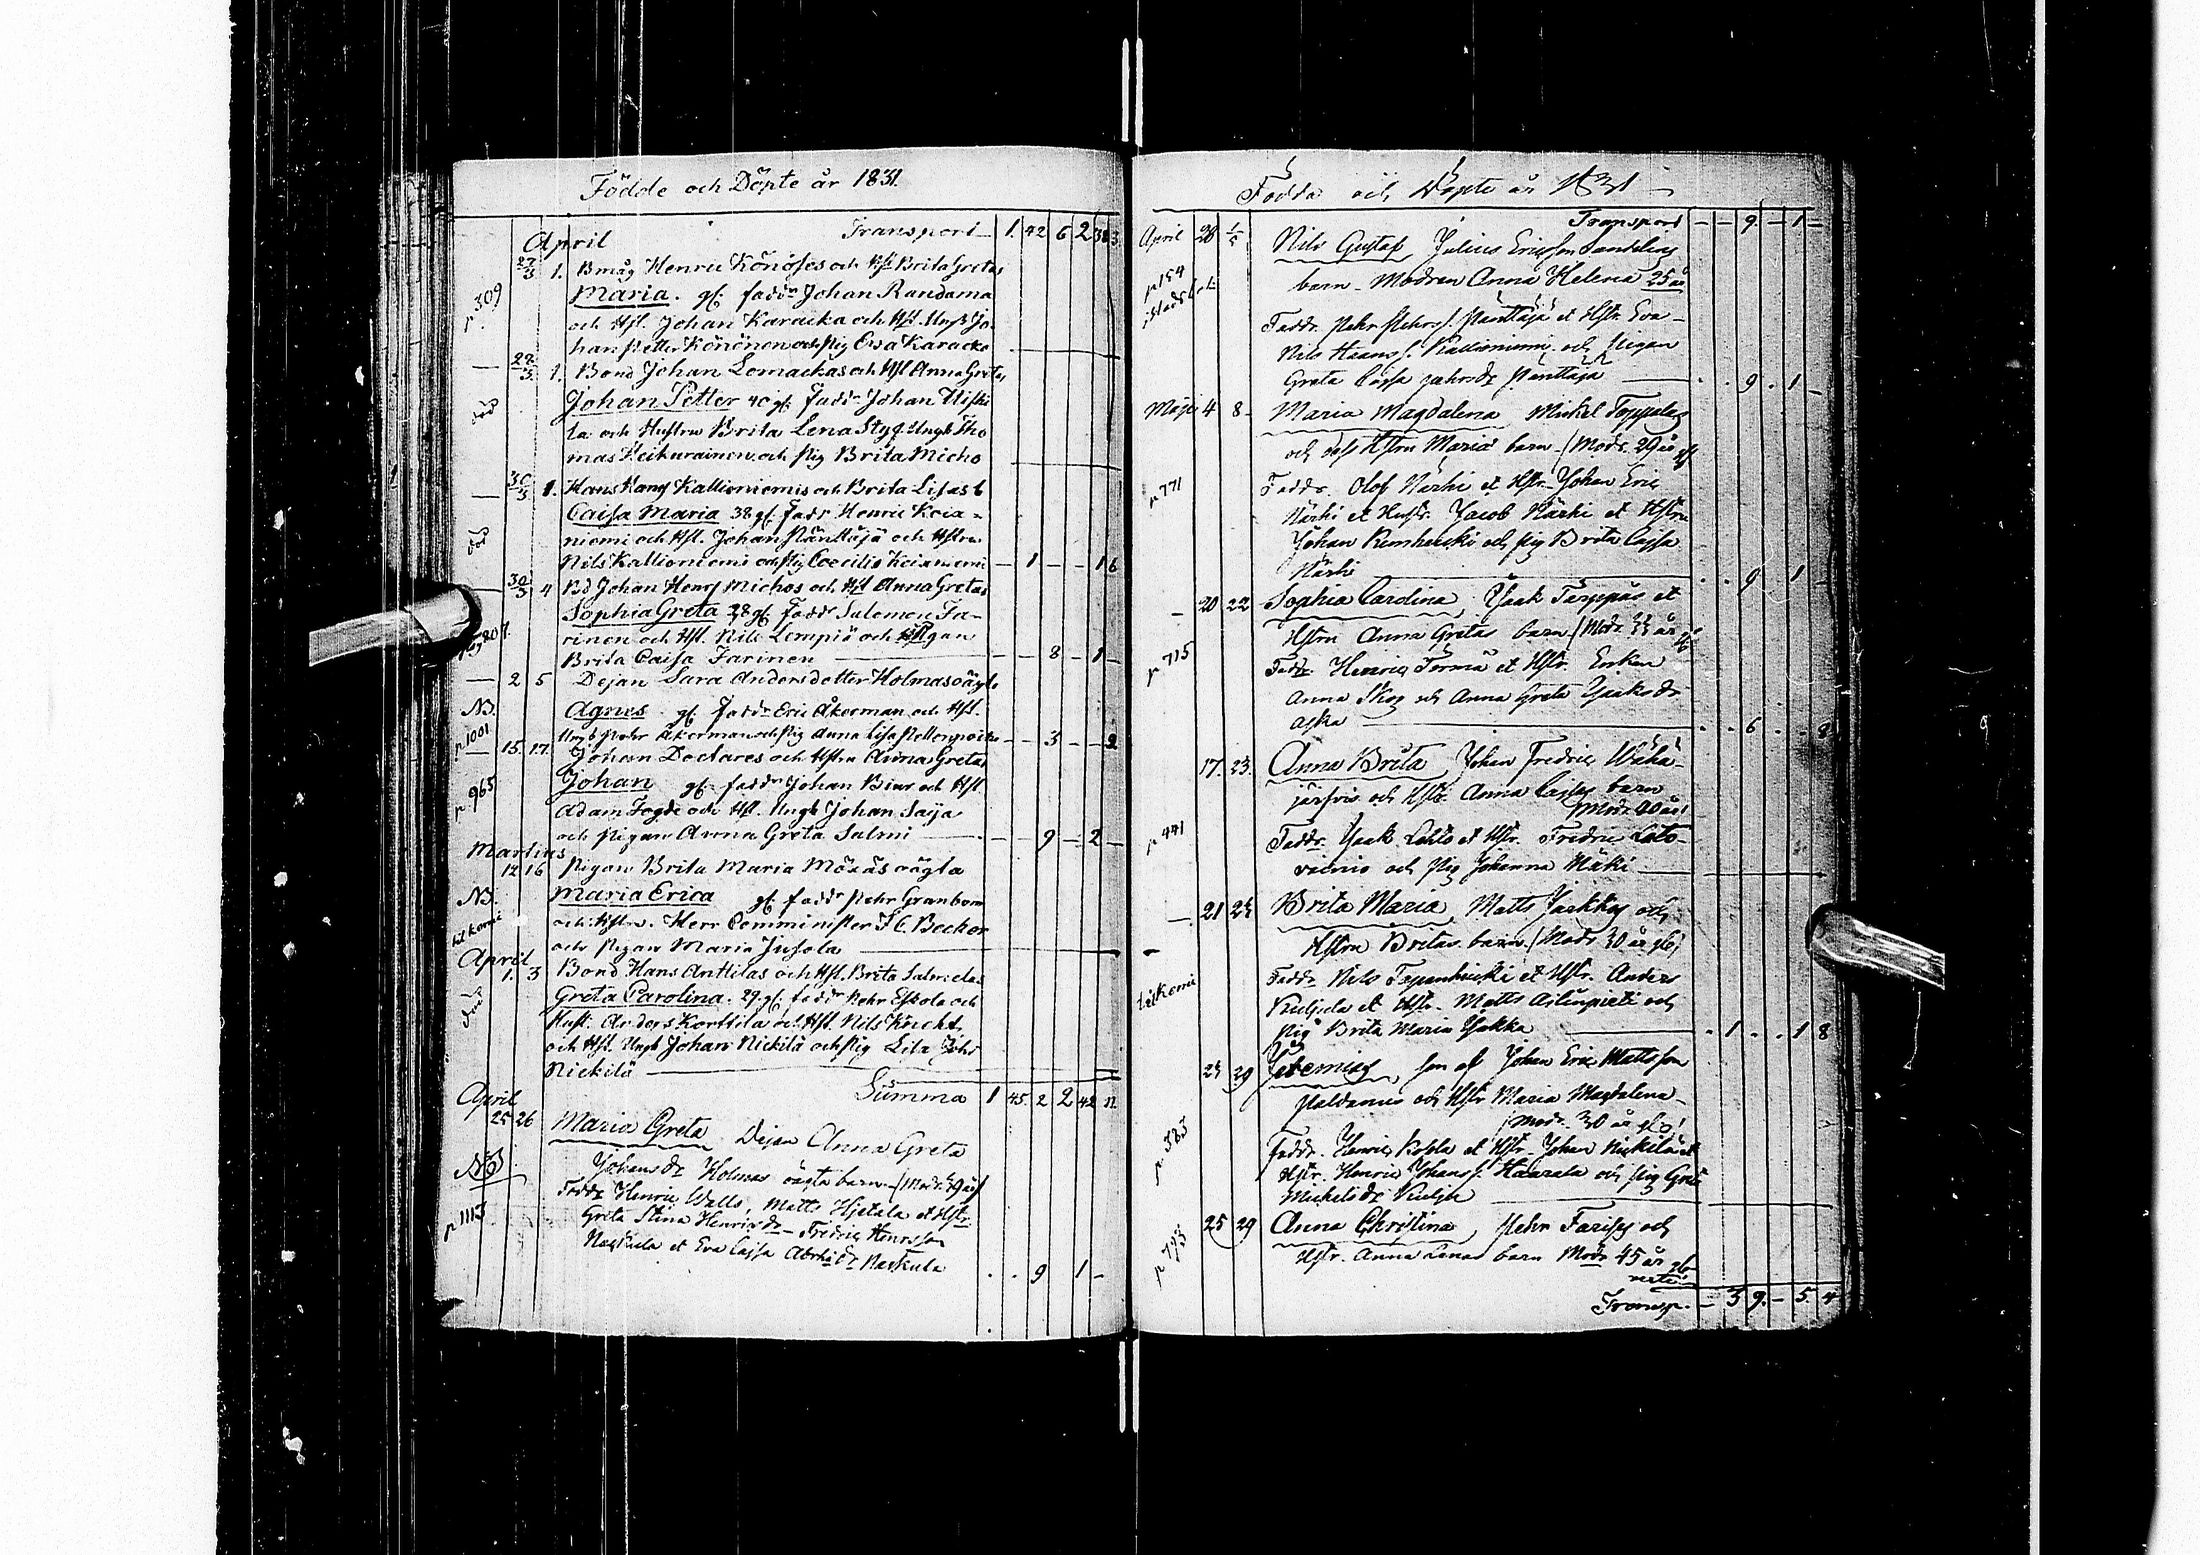 Födde och Döpte år 1831.
April Transport 1. 42 6 2 38 3
27/3 1. Bmåg Henric Könöses och Hst Brita Gretas
p 309 Maria. gf. faddr Johan Randama
och Hst. Johan Karacka och Hst. Ungk Jo-
han Petter Könönen och Pig Eva Karacko
28/3 1. Bond Johan Lomackas och Hst Anna Gretas
död Johan Petter 40 gf. faddr Johan
la och Hustru Brita Lena Styf Ungk Tho
mas Keikurainen och Pig Brita Micho
30/3 1. Hans Hansf Kallioniemis och Brita Lisas b
Caisa Maria 38 gf. fadr Henric Keix-
död niemi och Hst. Johan Pänttäjä och Hstru
Nils Kallioniemi och Pig Coecilia Keixniemi – 1 – – 1 6
30/3 4 Bd Johan Hensf Michos och Hst Anna Gretas
Sophia Greta 28 gf. faddr Salomon Ja-
rinen och Hst. Nils Lempiö och Pigan
Brita Caisa Jarinen – – 8 – 1 –
2 5 Dejan Sara Andersdotter Holmas oägta
NB. Agnes gf. faddr Eric Åkerman och Hst.
p. 1001 Ungk Pehr Åkerman och Pig Anna Lisa – – 3 – – 2
15. 17. Johan Doctares och Hstru Anna Gretas
p 965 Johan gf. faddr Johan Biur och Hst
Adam Fogde och Hst. Ungk Johan Saija
och Pigan Anna Greta Salmi – – 9 – 2 –
Martius
12 16 Pigan Brita Maria Möxäs oägta
NB. Maria Erica gf. faddr Pehr Granbom
och Hstru. Herr Comminister F C. Becker
och Pigan Maria Jusola
April
1. 3 Bond Hans Anttilas och Hst. Brita Salmelas
död Greta Carolina. 29. gf. faddr Pehr Eskola och
Hust. Anders Korttila och Hst. Nils Knekt
och Hst. Ungk Johan Nickilä och Pig Lisa
Nickilä
Summa 1 45. 2 2 42 11
April
25 26 Maria Greta Dejan Anna Greta
NB Johansdr Holmas oägta barn (Modr. 29 år)
Faddr Henric Walls, Matts Hjetala et Hstr.
p 1113 Greta Stina Henricsdr – Fredric Henrsson
Naskula et Eva Cajsa Abrhsdr Naskula . . 9 1 –
Födda och Döpte år 1831
Transport – – 9. – 1 –
April 28 1/5 Nils Gustaf, Julius Ericsson
p 154 barn – Modren Anna Helena 25 år
Faddr. Pehr Pehrs. Pänttäjä et Hstr. Eva –
Nils Hanss. Kallioniemi och Pigan
Greta Cajsa Pehrsdr Pänttäjä . . 9 . 1 –
Maji 4 8 – Maria Magdalena Mickel Toppelas
och dess Hstru Marias barn (Modr. 29 år gf
p 771 Faddr. Olof Närhi et Hstr. Johan Eric
Närhi et Hustr. Jacob Närhi et Hstru
Johan et Pig Brita Cajsa
Närhi . . 9 . 1 –
20 22 Sophia Carolina, Isak Törmäs et
Hstru Anna Gretas barn (Modr. 33 år gf
p 715 Faddr. Henric Törmä et Hstr. Enkan
Anna Skog och Anna Greta Isaksdr
Aska . . 6 . . 8
17. 23. Anna Brita, Johan Fredric Wähä-
järfvis och Hstr. Anna Cajsas barn
Modr. 40 år
p 441 Faddr. Isak Lehto et Hstr. Fredric
och Pig Johanna Mäki
– 21 24 Brita Maria, Matts Jaakkos och
Hstru Britas barn. (Modr 30 år gf.)
Tilkomi Faddr. Nils et Hstr. Anders
Kuljula et Hstr. Matts och
Pig Brita Maria Jakka . 1 . . 1 8
24 29 Jeremias, son af Johan Eric Mattsson
Paldanius och Hstr Maria Magdalena
(Modr. 30 år gf.)
p 383 Faddr. Henric et Hstr. Johan Nickilä et
Hstr. Henric Johanss. Haarala och Pig Greta
Mickelsdr Kuilju
25 29 Anna Christina, Pehr Farisas och
p 793 Hstr. Anna Lenas barn Modr 45 år gf
Transp. – 3 9. – 5. 4